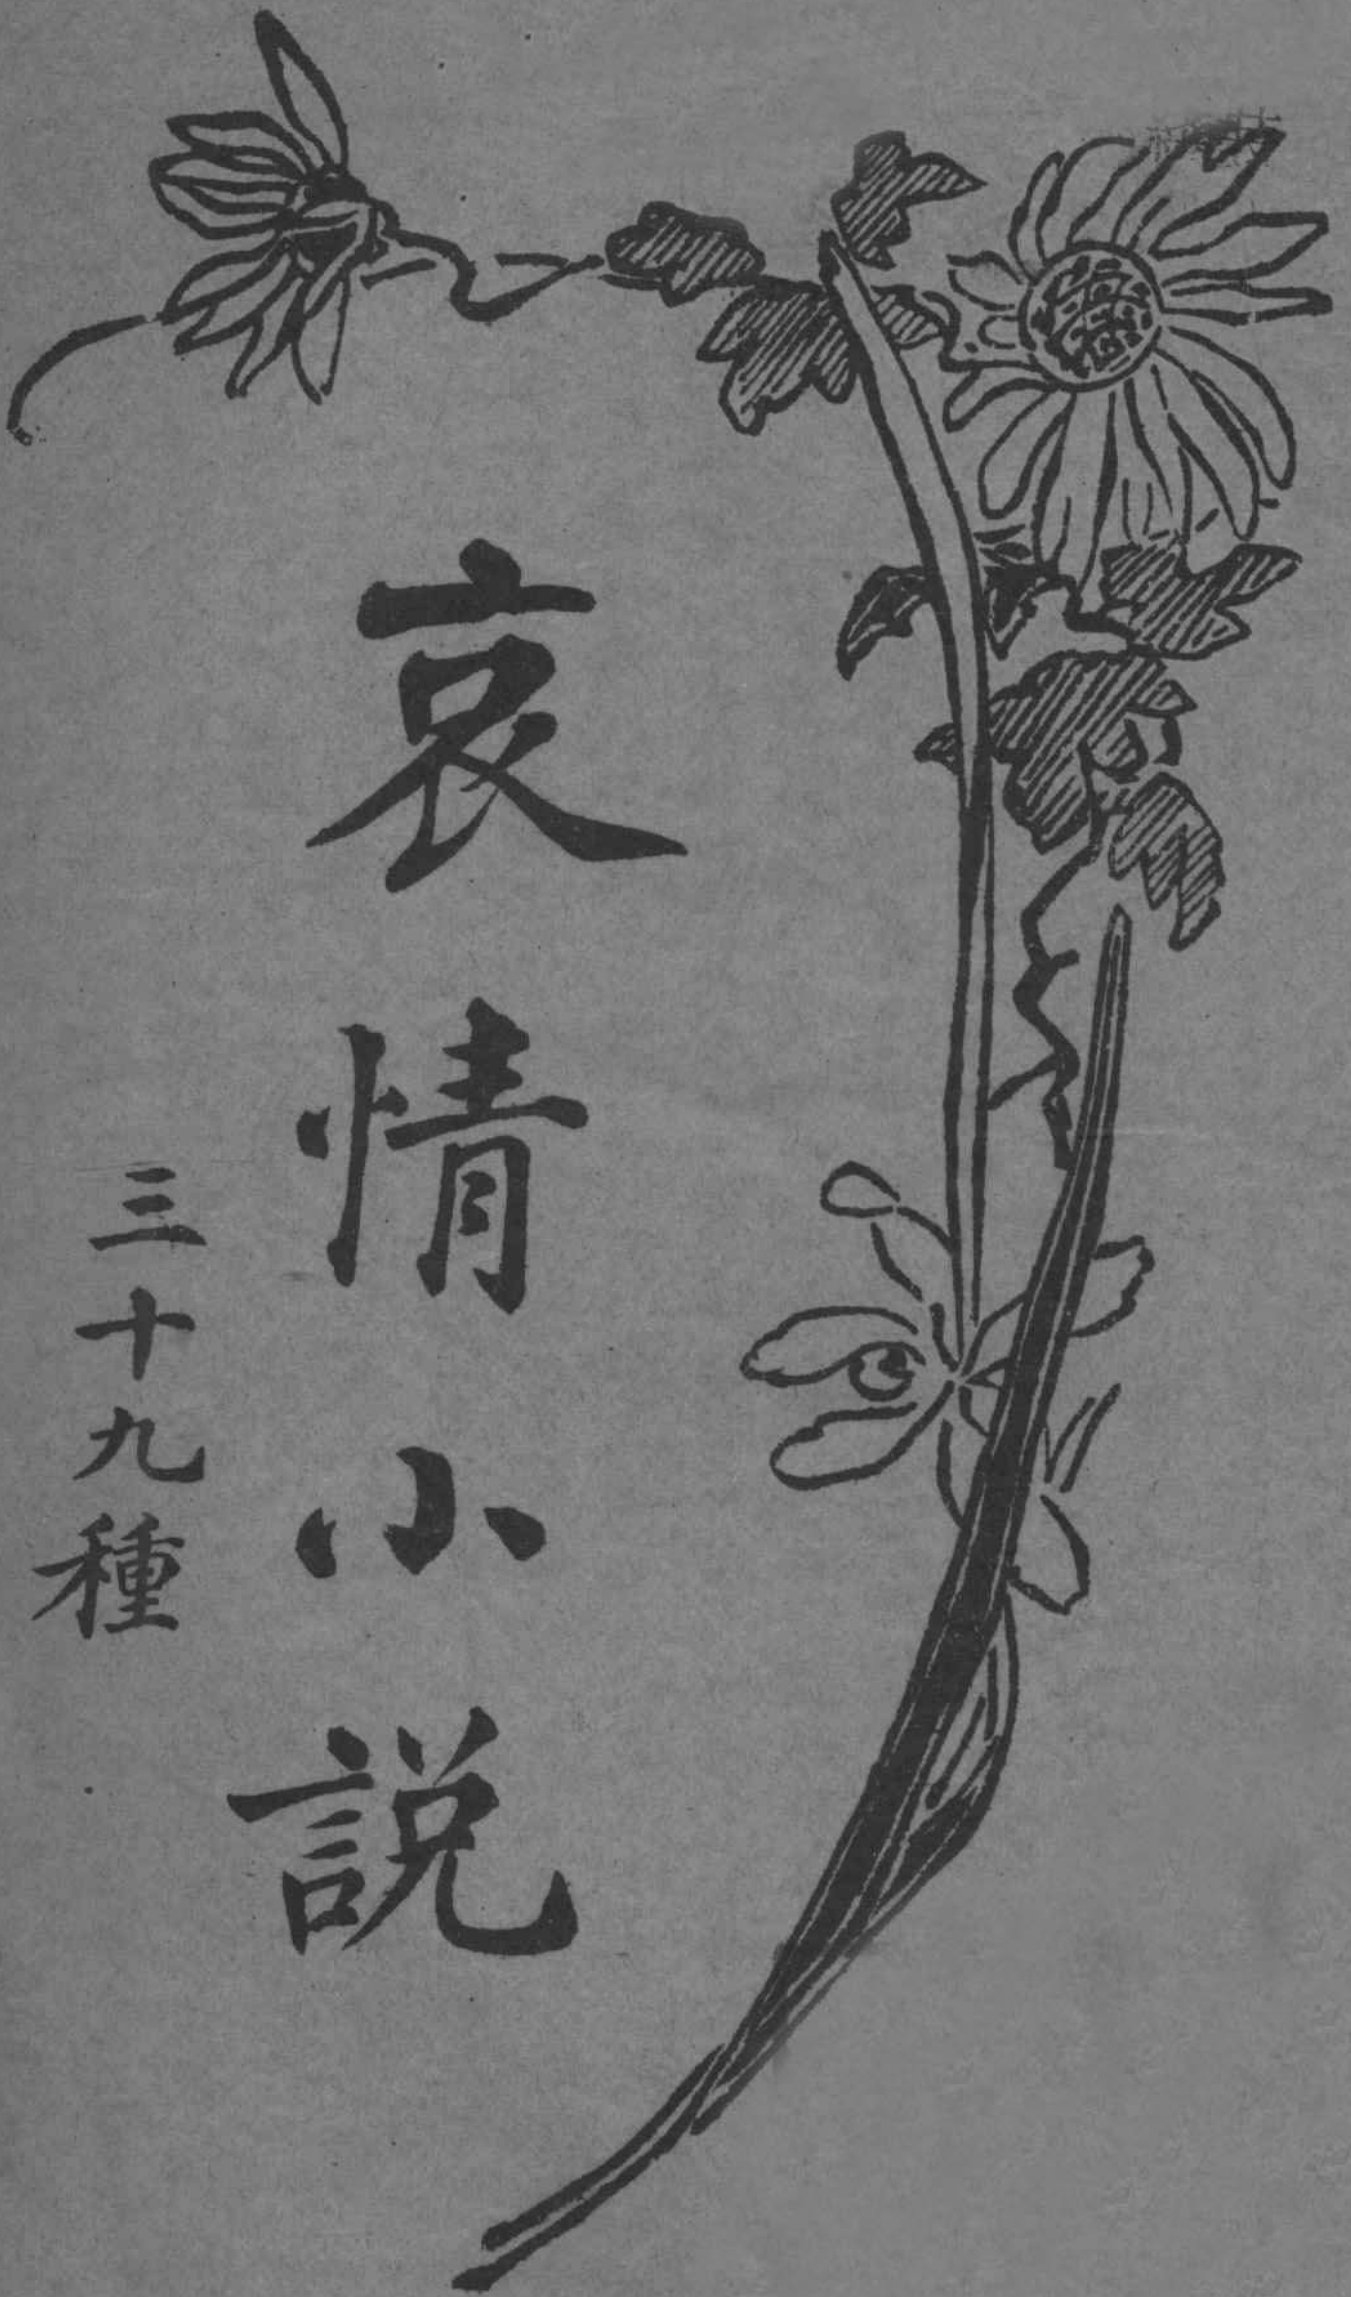 哀情小説
三十九種